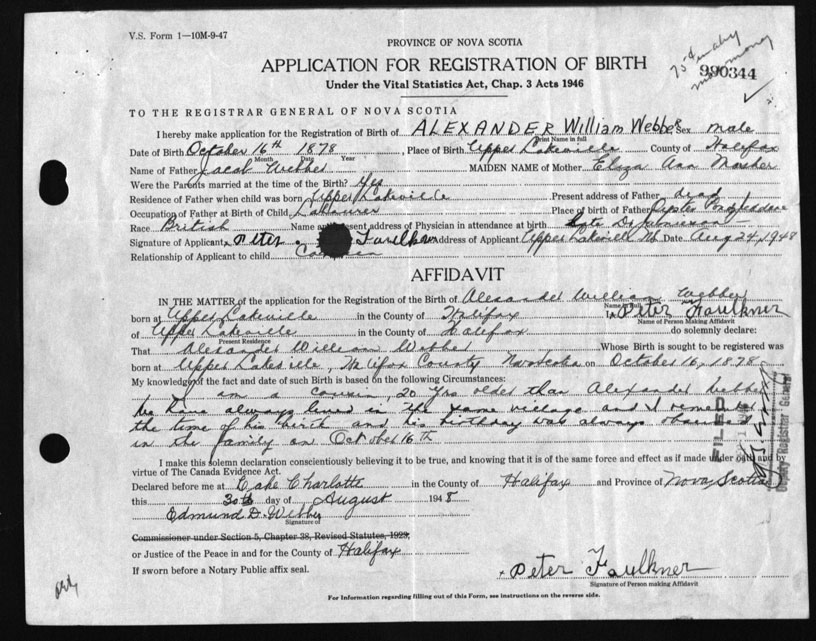 V.S. Form 1—10M-9-47
PROVINCE OF NOVA SCOTIA
APPLICATION FOR REGISTRATION OF BIRTH
990344
Under the Vital Statistics Act, Chap. 3 Acts 1946
TO THE REGISTRAR GENERAL OF NOVA SCOTIA
I hereby make application for the Registration of Birth of ALEXANDER William Webber Sex male
Print Name in full
Date of Birth October 16th 1878, Place of Birth Upper Lakeville County of Halifax
Month Date Year
Name of Father Jacob Webber MAIDEN NAME of Mother Eliza Ann Mosher
Were the Parents married at the time of Birth? Yes
Residence of Father when child was born Upper Lakeville Present address of Father dead
Occupation of Father at Birth of Child Labourer Place of birth of Father Oyster Pond Jeddore
Race British Name and present address of Physician in attendance at birth Late Dr Jamieson
Signature of Applicant Peter Faulkner Address of Applicant Upper Lakeville NS Date Aug 24, 1948
Relationship of Applicant to child Cousin
AFFIDAVIT
IN THE MATTER of the application for the Registration of the Birth of Alexander William Webber
Name in full
born at Upper Lakeville in the County of Halifax I, Peter Faulkner
Name of Person Making Affidavit
of Upper Lakeville in the County of Halifax do solemnly declare:
Present Residence
That Alexander William Webber Whose Birth is sought to be registered was
born at Upper Lakeville, Halifax County Nova Scotia on October 16, 1878
My knowledge of the fact and date of such Birth is based on the following Circumstances:
I am a cousin, 20 yrs older than Alexander Webber
We have always lived in the same village and I remember
the time of his birth and his birthday was always observed
in the family on October 16th
FILED
Deputy-Registrar General
I make this solemn declaration conscientiously believing it to be true, and knowing that it is of the same force and effect as if made under oath and by
virtue of The Canada Evidence Act.
Declared before me at Lake Charlotte in the County of Halifax and Province of Nova Scotia
this 30th day of August 1948
Edmund D. Webber
Signature of
Commissioner under Section 5, Chapter 38, Revised Statutes, 1923,
or Justice of the Peace in and for the County of Halifax
If sworn before a Notary Public affix seal.
Peter Faulkner
Signature of Person making Affidavit
For Information regarding filling out of this Form, see instructions on the reverse side.